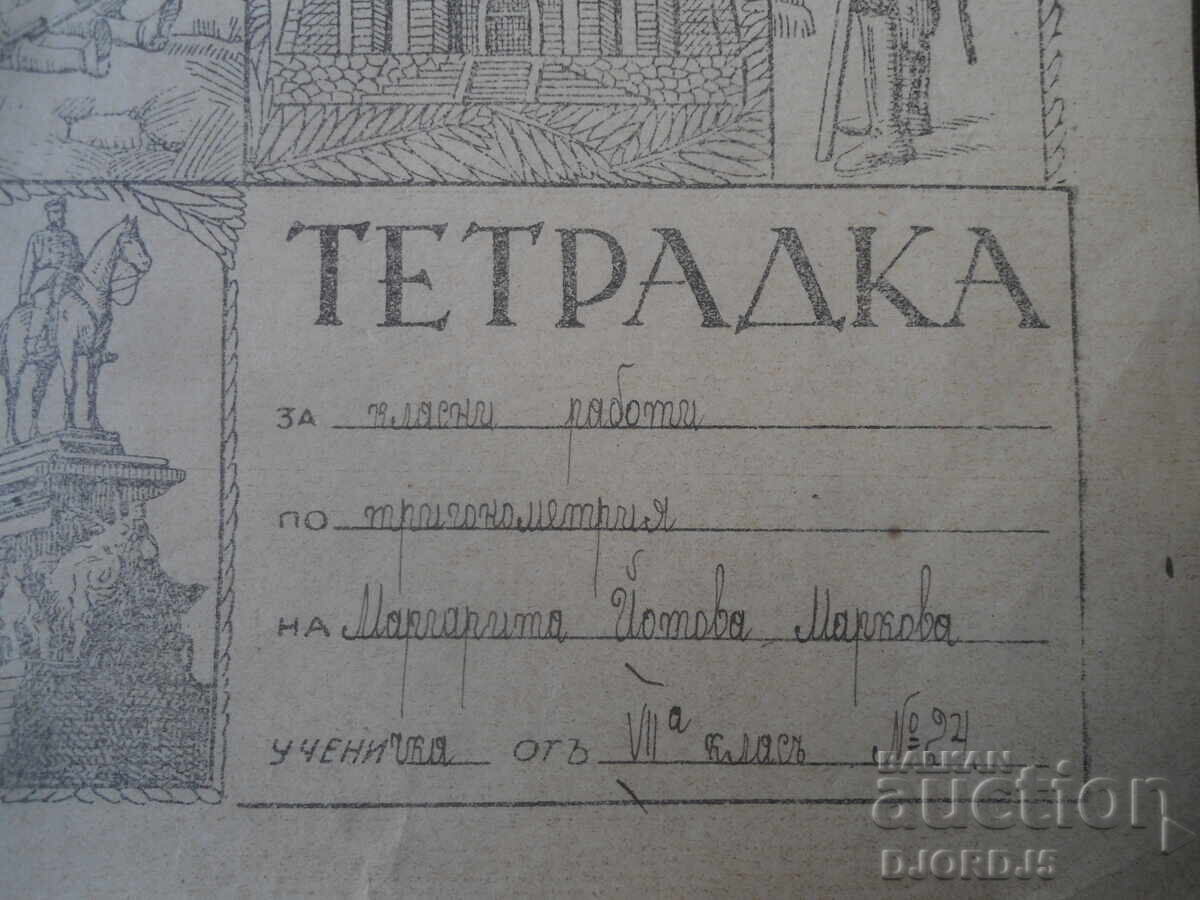 ТЕТРАДКА
ЗА класни работи
ПО тригонометрия
НА Маргарита Йотова Маркова
УЧЕНИчка ОТЪ VIIа класъ № 24
BALKAN
auction
DJORDJ5